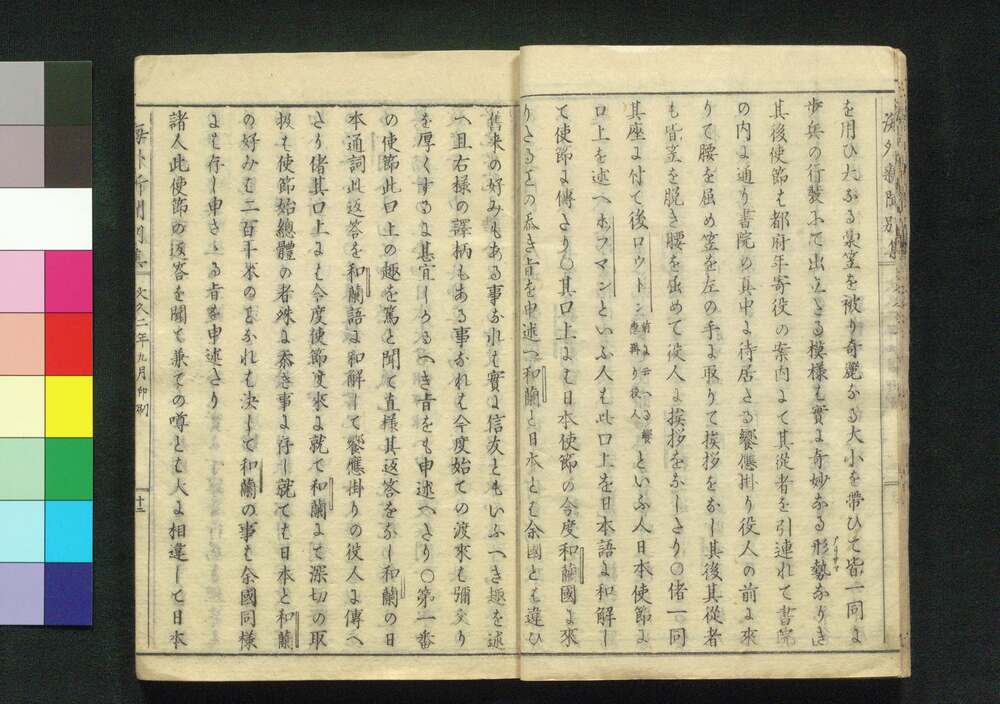 を用ひ大ふる裳笠を被り奇麗かる大小を帯ひて皆一同よ
歩兵の行装ふて出立さる模様も實よ奇妙なる形勢なりき
其後使節も都府年寄役の案内よて其從者を引連れて書院
の内よ通り書院の真中よ待居さる饗應掛り役人の前よ來
りて腰を屈め笠を左の手よ取りて挨拶をなし其後其從者
も皆笠を脱き腰を屈めて役人よ挨拶をなしさり〇偖一同
其座よ付て後ロウトン といふ人日本使節よ
口上を述へホフマンといふ人も此口上を日本語よ和解し
て使節よ傳さり〇其口上よも日本使節の今度和蘭國よ來
りさる 忝き旨を申述へ和蘭と日本とも余國とも違ひ
舊来の好みもある事なれも實よ信友ともいふへき趣を述
へ且右様の譯柄もある事なれも今度始ての渡來も彌交り
を厚くするよ甚宜しかるへき旨をも申述へさり〇第一番
の使節此口上の趣を篤と聞て直様其返答をなし和蘭の日
本通詞此返答を和蘭語よ和解して饗應掛りの役人よ傳へ
さり偖其口上よも今度使節渡來よ就て和蘭よて深切の取
扱も使節始總體の者殊よ忝き事よ存し就ても日本と和蘭
の好みも二百年來の なれも決して和蘭の事も余國同様
よも存し申さゝる者を申述さり
諸人此使節の返答を聞て兼ての噂とも大よ相違して日本
文久二年九月印刻
十三